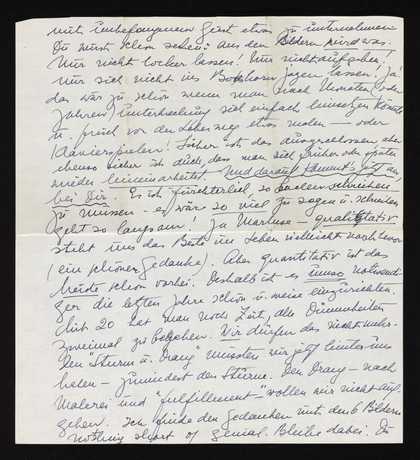 mit unbefangenem Geist etwas zu unternehmen
Du wirst schon sehen: aus den Bildern wird was.
Nur nicht locker lassen! Nur nicht aufgeben!
Nur sich nicht ins Bockshorn jagen lassen. Ja
das wär zu schön wenn man nach Monaten (oder
Jahren) Unterbrechung sich einfach hinsetzen könnte
u. frisch von der Leber weg etwas malen – oder
Klavierspielen! Sicher ist das ausgeschlossen aber
ebenso sicher ist auch, dass man sich früher oder später
wieder hineinarbeitet. Und darauf kommt's jetzt an
bei Dir. Es ist fürchterlich, so Sachen schreiben
zu müssen – es wäre so viel zu sagen u. schreiben
geht so langsam! Ja Marianne – qualitativ
steht uns das Beste im Leben vielleicht noch bevor
(ein schöner Gedanke). Aber quantitativ ist das
Meiste schon vorbei. Deshalb ist es umso notwendi-
ger die letzten Jahre schön u. weise einzurichten.
Mit 20 hat man noch Zeit, alle Dummheiten
zweimal zu begehen. Wir dürfen das nicht mehr.
Den "Sturm u. Drang" müssen wir jetzt hinter uns
haben – zumindest den Sturm. Den Drang – nach
Malerei und "fulfillment" – wollen wir nicht auf-
geben. Ich finde den Gedanken mit den 6 Bildern
nothing short of genial. Bleibe dabei. Du